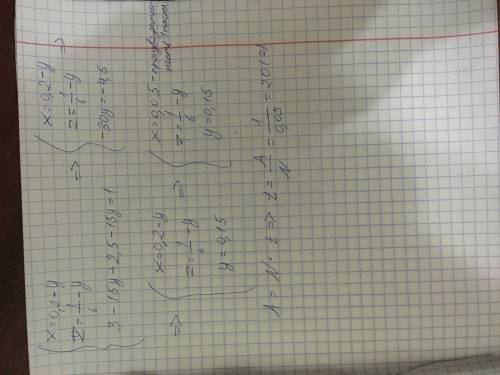 x=0,2-y
z=1/6-y
3-15y+2,5-15y=1
=>
x=0,2-y
z=1/6-y
-30y=-4,5
=>
=>
x=0,2-y
z=1/6-y
y=0,15
=>
x=0,05-
z=1/6-y
y=0,15
A=N·t=>t=A/N=1/0,05=20(ч)